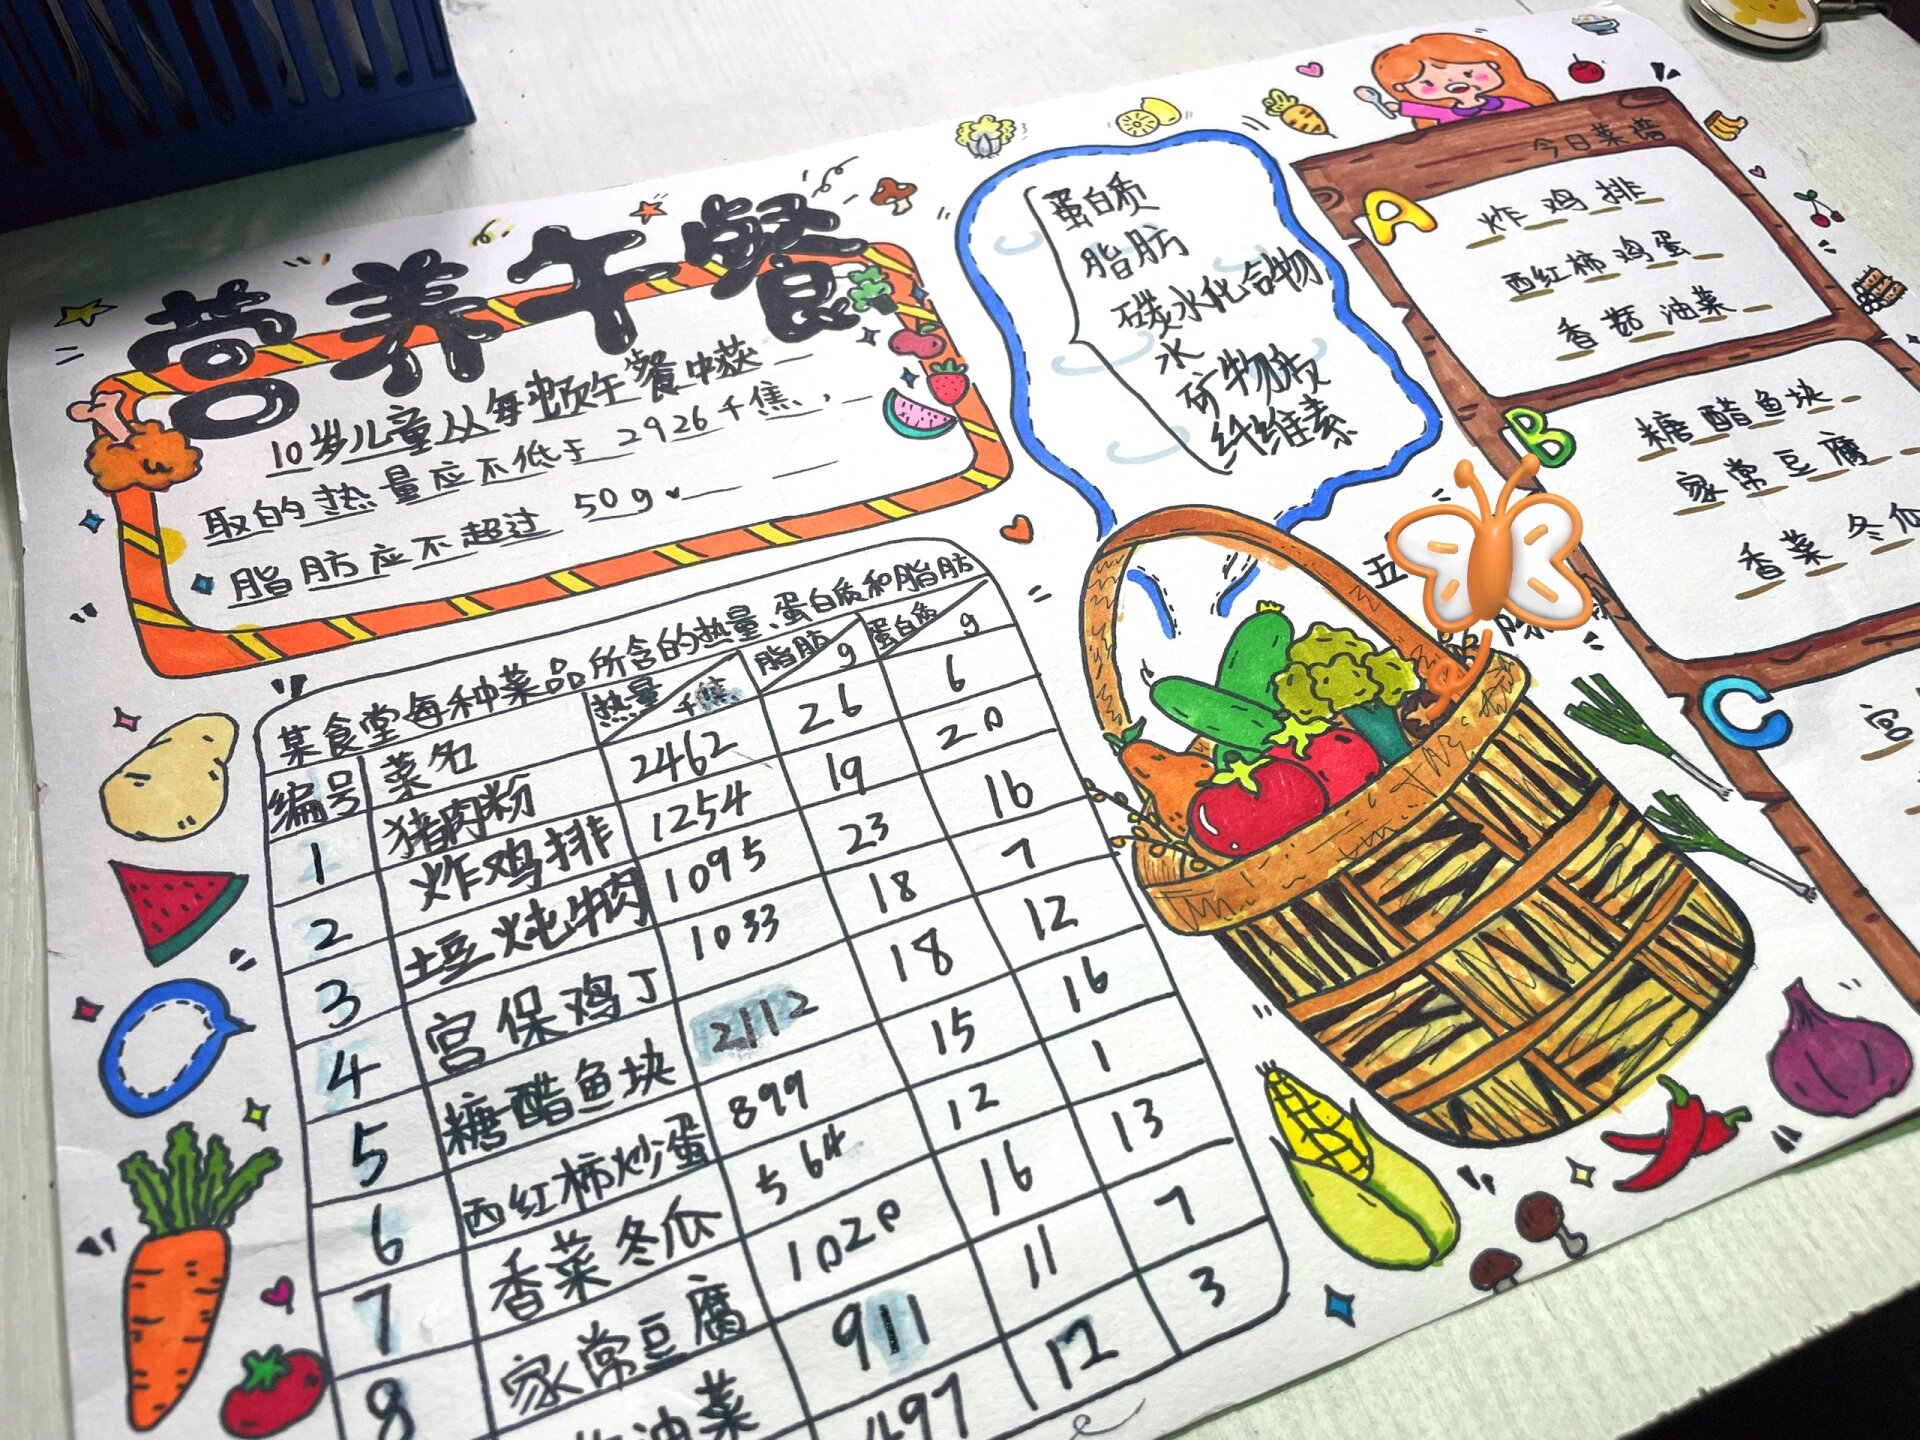 营养午餐
10岁儿童从每顿午餐中获
取的热量应不低于2926千焦,
脂肪应不超过50g.
某食堂每种菜品所含的热量、蛋白质和脂肪
编号 菜名 热量 千焦 脂肪 g 蛋白质 g
1 猪肉粉 2462 26 6
2 炸鸡排 1254 19 20
3 土豆炖牛肉 1095 23 16
4 宫保鸡丁 1033 18 7
5 糖醋鱼块 2112 18 12
6 西红柿炒蛋 899 15 16
7 香菜冬瓜 564 12 1
8 家常豆腐 1020 16 13
油菜 911 11 7
497 12 3
蛋白质
脂肪
碳水化合物
水
矿物质
纤维素
五
今日菜谱
A
炸鸡排
西红柿鸡蛋
香菇油菜
B
糖醋鱼块
家常豆腐
香菜冬瓜
C
宫